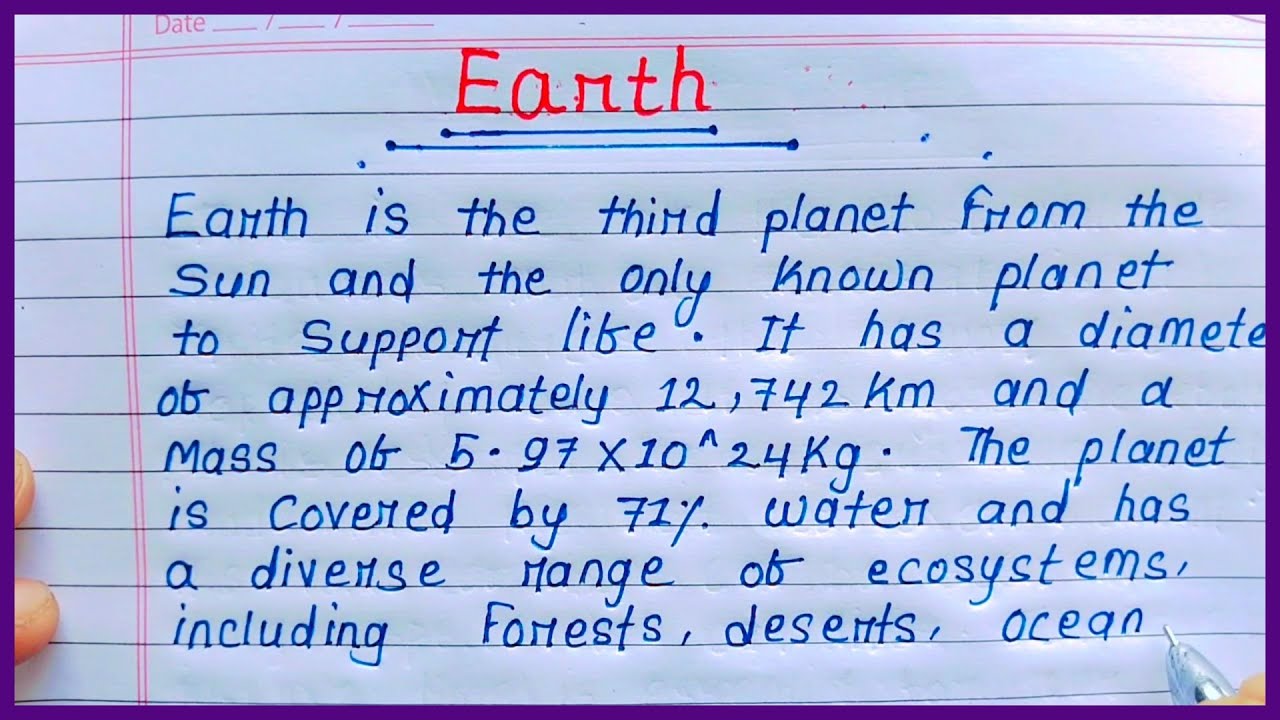 Date __ / __ / ____
Earth
Earth is the third planet from the
Sun and the only known planet
to Support life. It has a diamete
of approximately 12,742 Km and a
Mass of 5.97 X 10^24 Kg. The planet
is Covered by 71% water and has
a diverse range of ecosystems,
including Forests, deserts, ocean